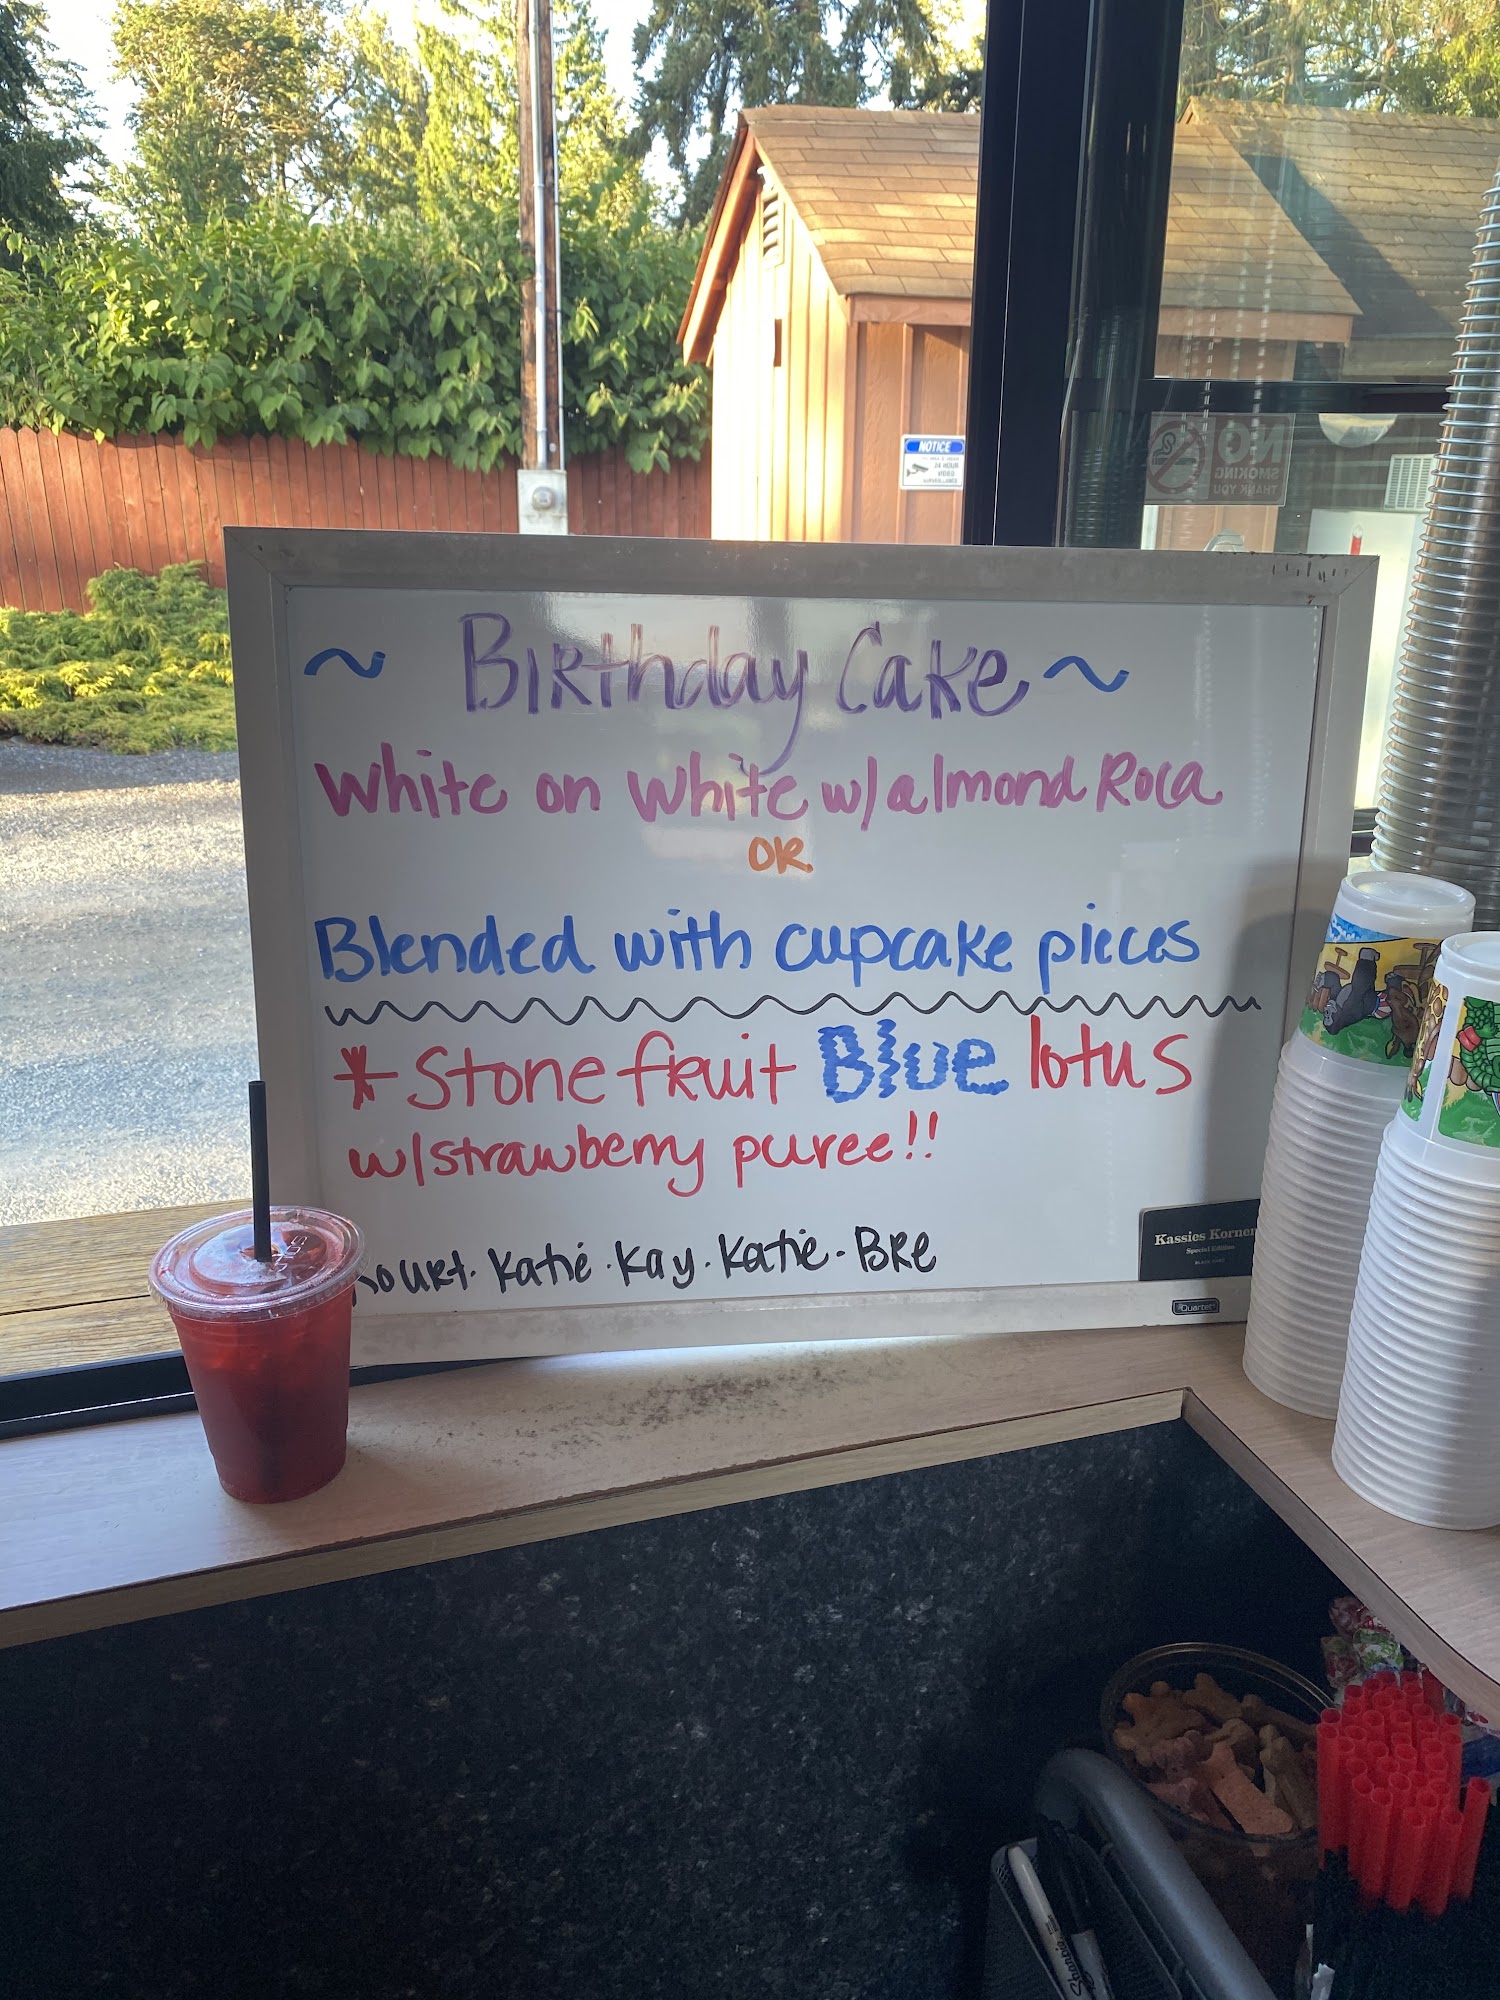 NOTICE
NO
SMOKING
THANK YOU
~ Birthday Cake ~
White on White w/almond Roca
OR
Blended with cupcake pieces
* Stone fruit Blue lotus
w/strawberry puree!!
Katie · Kay · Katie · BRE
Kassies Korner
Special Edition
Quartet
SOLO
Sharpie